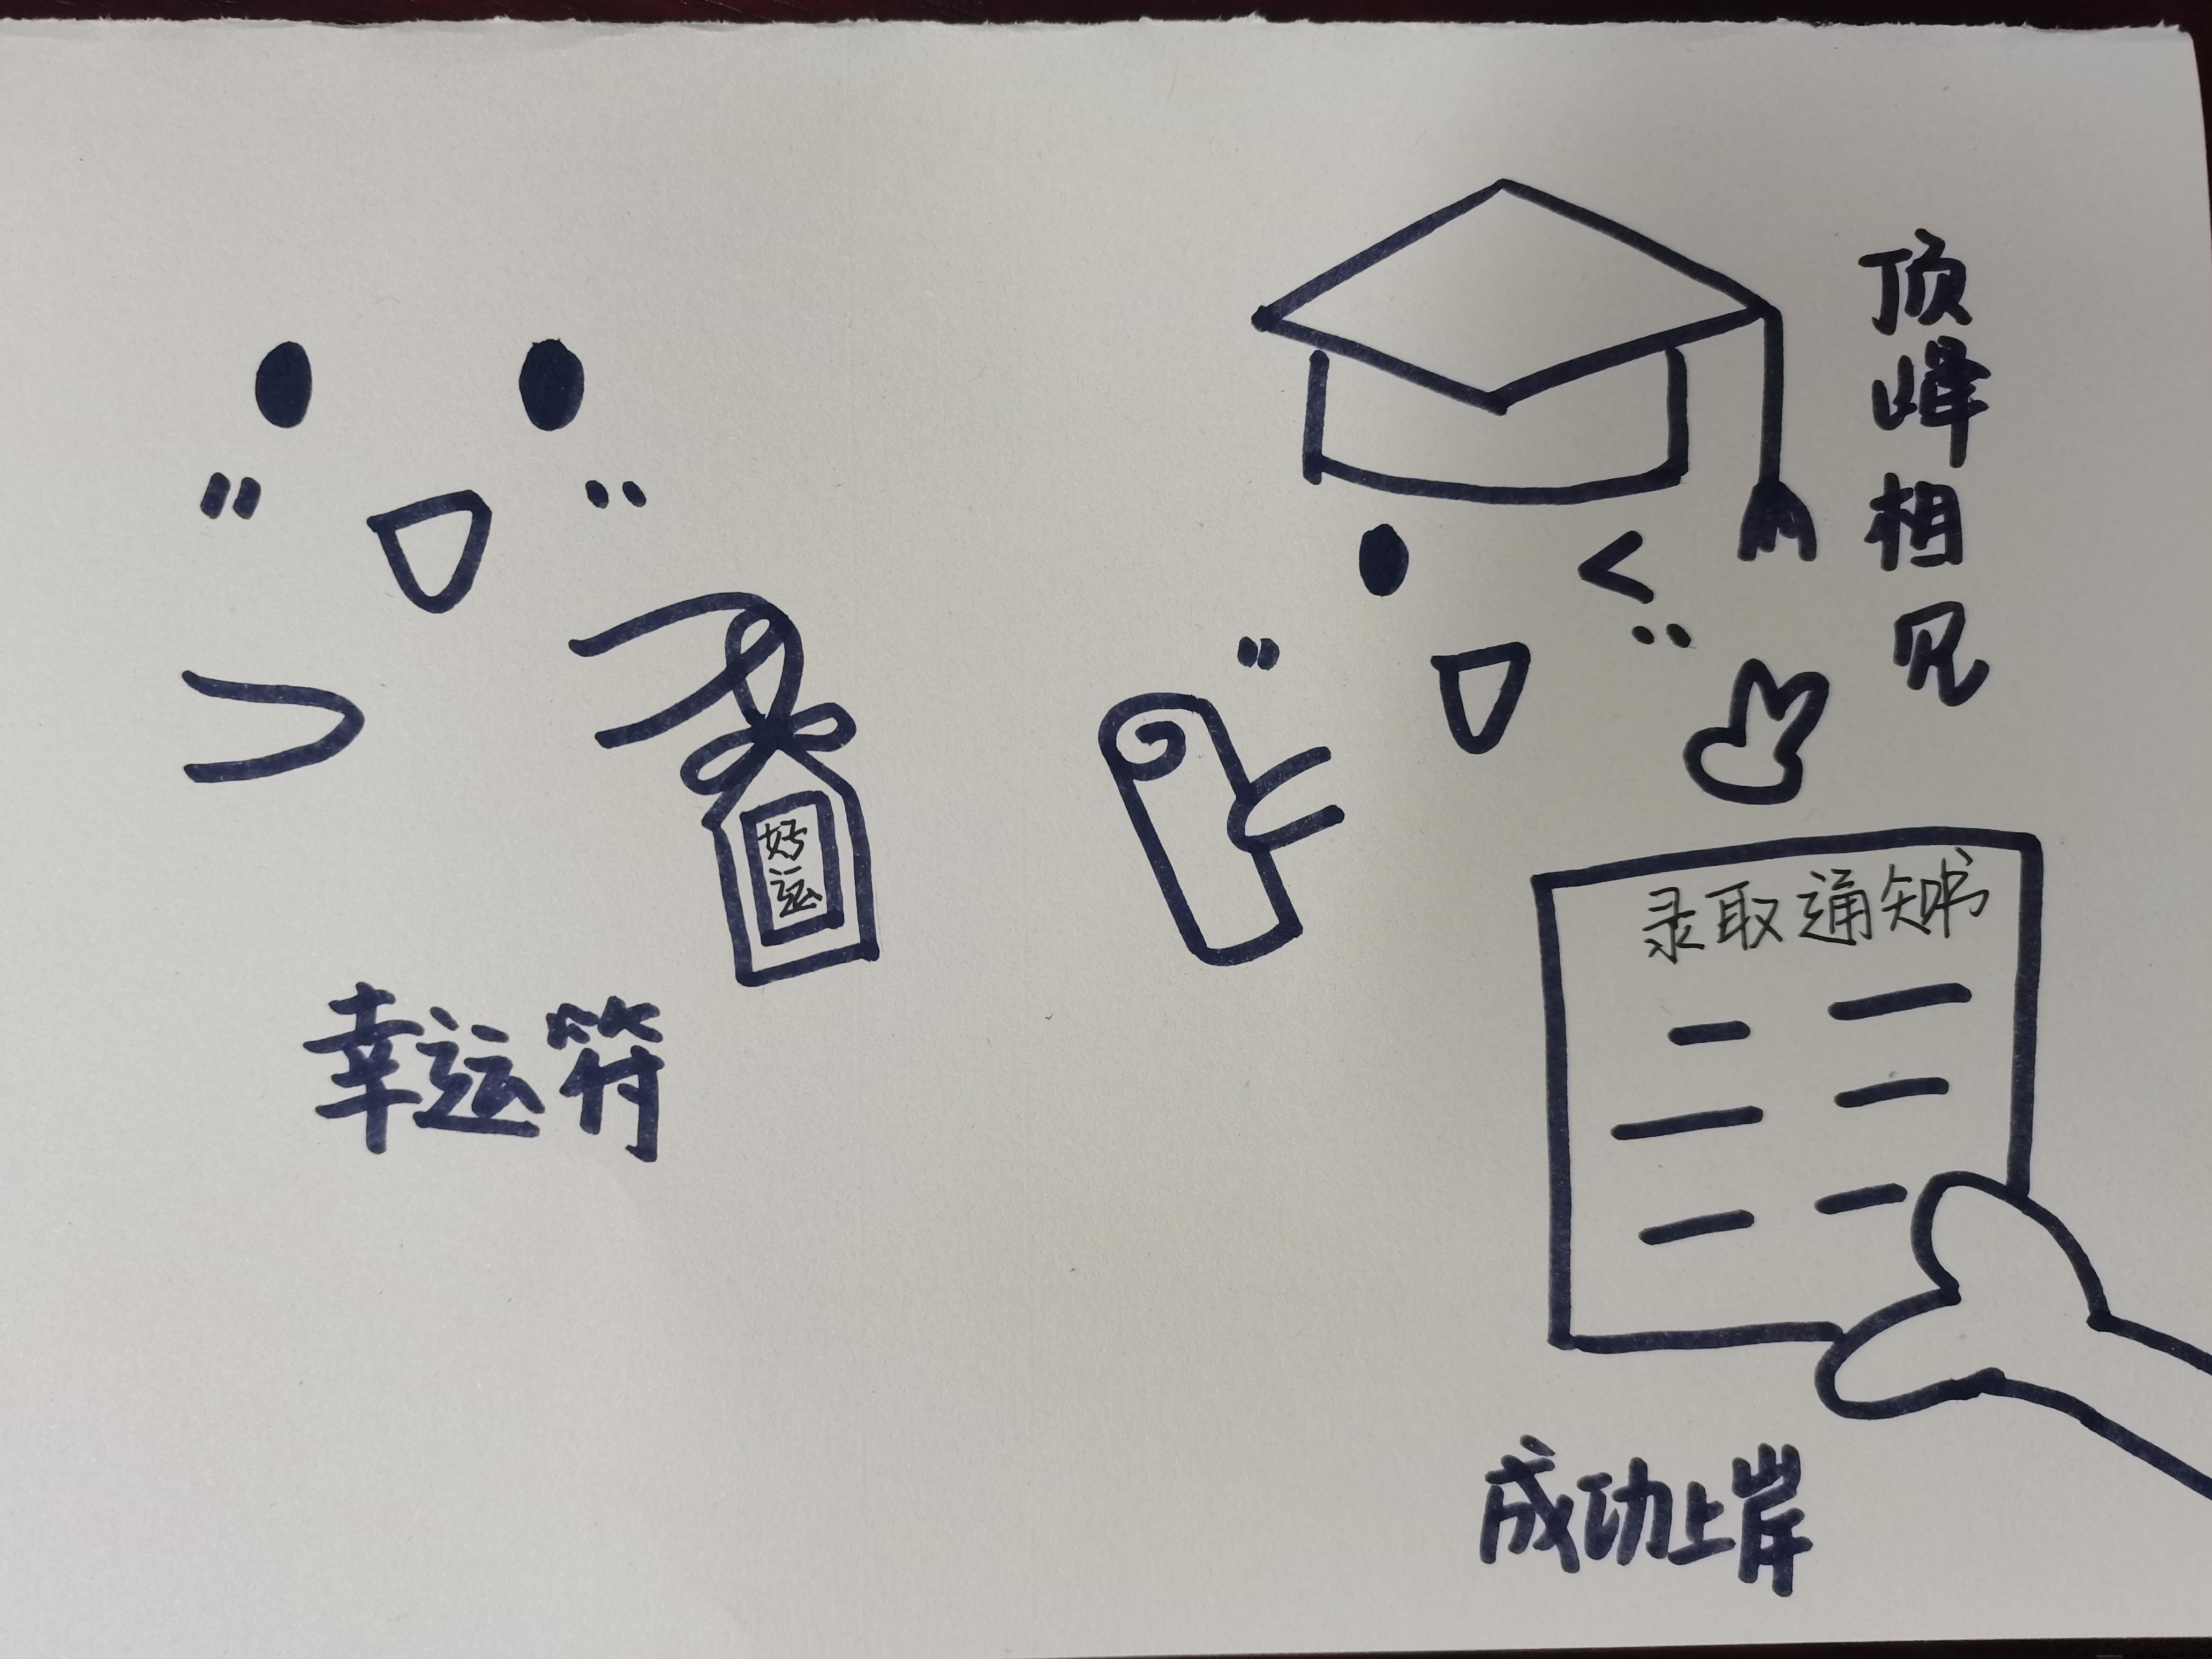 好运
幸运符
顶峰相见
录取通知书
成功上岸